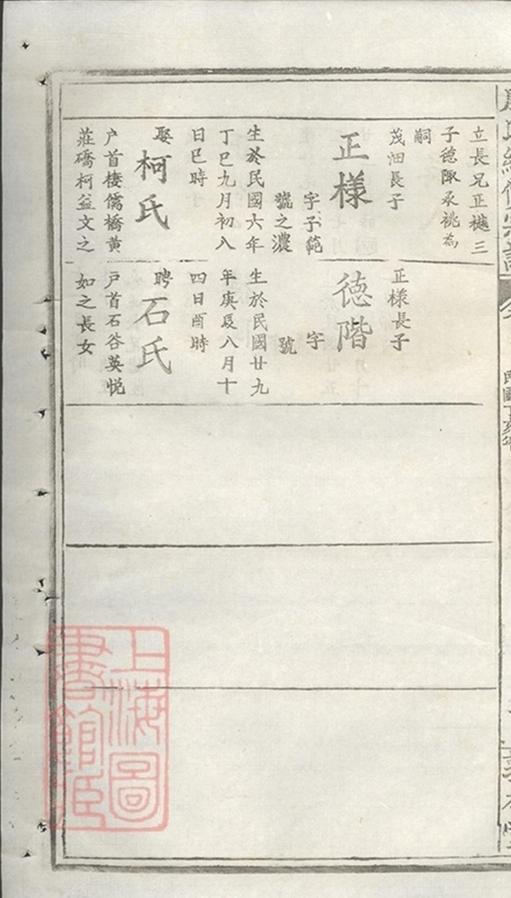 立長兄正樾三
子德陬承祧為
嗣
茂沺長子
正樣
字子範
號之濃
生於民國六年
丁巳九月初八
日巳時
娶柯氏
户首棲儒橋黄
莊礄柯益文之
正樣長子
德階
字
號
生於民國廿九
年庚辰八月十
四日酉時
聘石氏
戸首石峇英悦
如之長女
上海圖
書館藏